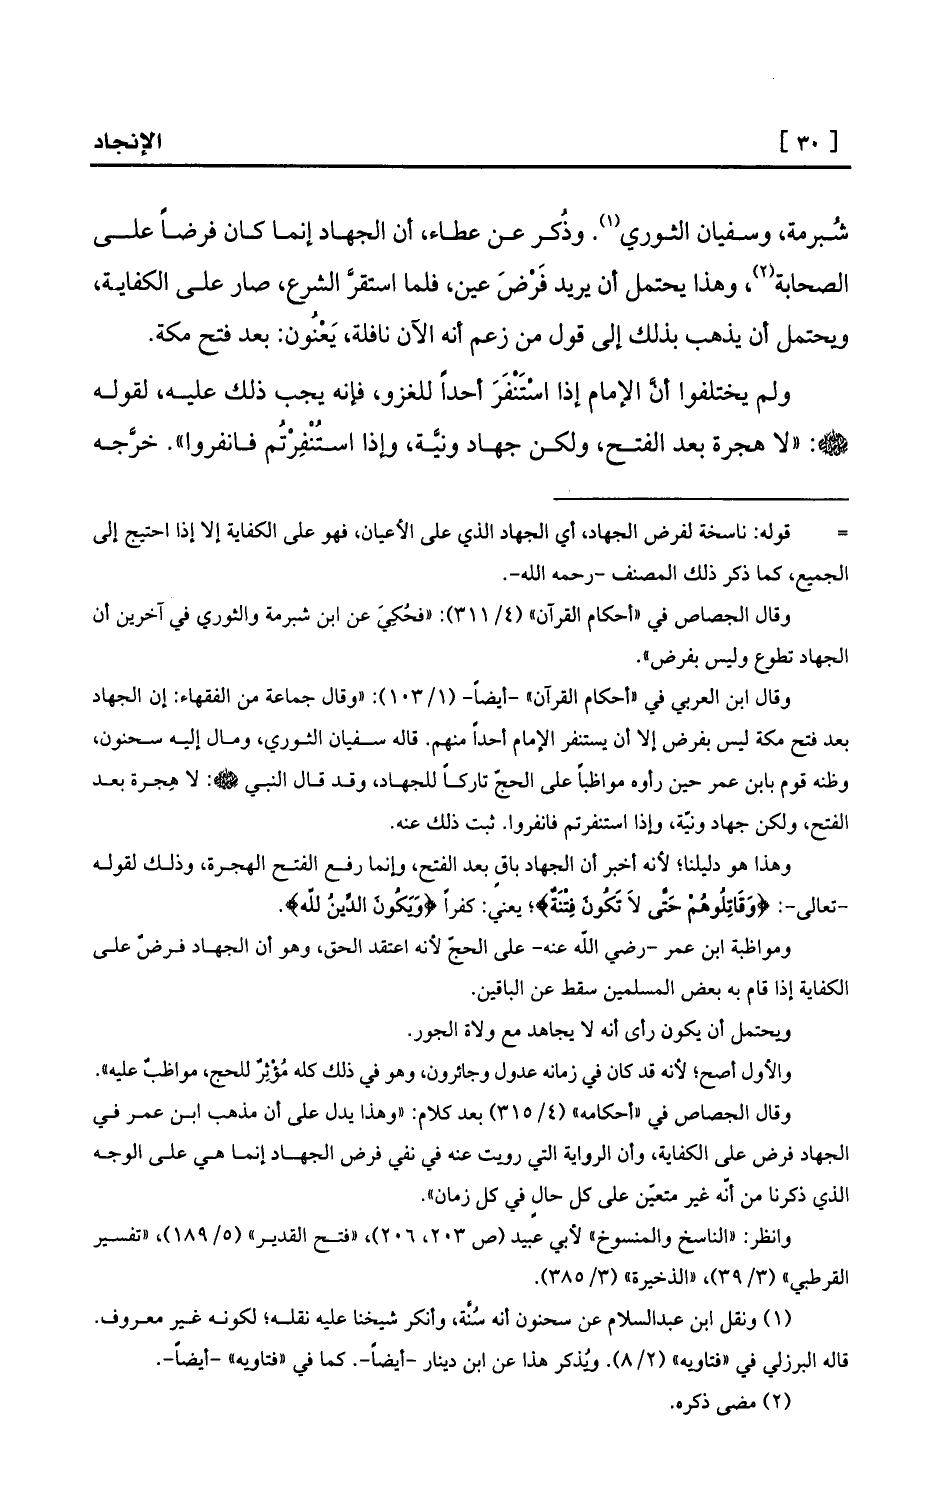 [ ٣٠ ] الإنجاد
شُبرمة، وسفيان الثوري(١). وذُكر عن عطاء، أن الجهاد إنما كان فرضاً على
الصحابة(٢)، وهذا يحتمل أن يريد فَرْضَ عين، فلما استقرَّ الشرع، صار على الكفاية،
ويحتمل أن يذهب بذلك إلى قول من زعم أنه الآن نافلة، يَعْنُون: بعد فتح مكة.
ولم يختلفوا أنَّ الإمام إذا اسْتَنْفَرَ أحداً للغزو، فإنه يجب ذلك عليه، لقوله
ﷺ: «لا هجرة بعد الفتح، ولكن جهاد ونيَّة، وإذا استُنْفِرْتُم فانفروا». خرَّجه
= قوله: ناسخة لفرض الجهاد، أي الجهاد الذي على الأعيان، فهو على الكفاية إلا إذا احتيج إلى
الجميع، كما ذكر ذلك المصنف -رحمه الله-.
وقال الجصاص في «أحكام القرآن» (٤/ ٣١١): «فحُكِيَ عن ابن شبرمة والثوري في آخرين أن
الجهاد تطوع وليس بفرض».
وقال ابن العربي في «أحكام القرآن» -أيضاً- (١/ ١٠٣): «وقال جماعة من الفقهاء: إن الجهاد
بعد فتح مكة ليس بفرض إلا أن يستنفر الإمام أحداً منهم. قاله سفيان الثوري، ومال إليه سحنون،
وظنه قوم بابن عمر حين رأوه مواظباً على الحجّ تاركاً للجهاد، وقد قال النبي ﷺ: لا هِجرة بعد
الفتح، ولكن جهاد ونيّة، وإذا استنفرتم فانفروا. ثبت ذلك عنه.
وهذا هو دليلنا؛ لأنه أخبر أن الجهاد باقٍ بعد الفتح، وإنما رفع الفتح الهجرة، وذلك لقوله
-تعالى-: ﴿وَقَاتِلُوهُمْ حَتَّى لاَ تَكُونَ فِتْنَةٌ﴾؛ يعني: كفراً ﴿وَيَكُونَ الدِّينُ للّه﴾.
ومواظبة ابن عمر -رضي اللّه عنه- على الحجّ لأنه اعتقد الحق، وهو أن الجهاد فرضٌ على
الكفاية إذا قام به بعض المسلمين سقط عن الباقين.
ويحتمل أن يكون رأى أنه لا يجاهد مع ولاة الجور.
والأول أصح؛ لأنه قد كان في زمانه عدول وجائرون، وهو في ذلك كله مُؤْثِرٌ للحج، مواظبٌ عليه».
وقال الجصاص في «أحكامه» (٤/ ٣١٥) بعد كلام: «وهذا يدل على أن مذهب ابن عمر في
الجهاد فرض على الكفاية، وأن الرواية التي رويت عنه في نفي فرض الجهاد إنما هي على الوجه
الذي ذكرنا من أنّه غير متعيّن على كل حالٍ في كل زمان».
وانظر: «الناسخ والمنسوخ» لأبي عبيد (ص ٢٠٣، ٢٠٦)، «فتح القدير» (٥/ ١٨٩)، «تفسير
القرطبي» (٣/ ٣٩)، «الذخيرة» (٣/ ٣٨٥).
(١) ونقل ابن عبدالسلام عن سحنون أنه سُنَّة، وأنكر شيخنا عليه نقله؛ لكونه غير معروف.
قاله البرزلي في «فتاويه» (٢/ ٨). ويُذكر هذا عن ابن دينار -أيضاً-. كما في «فتاويه» -أيضاً-.
(٢) مضى ذكره.